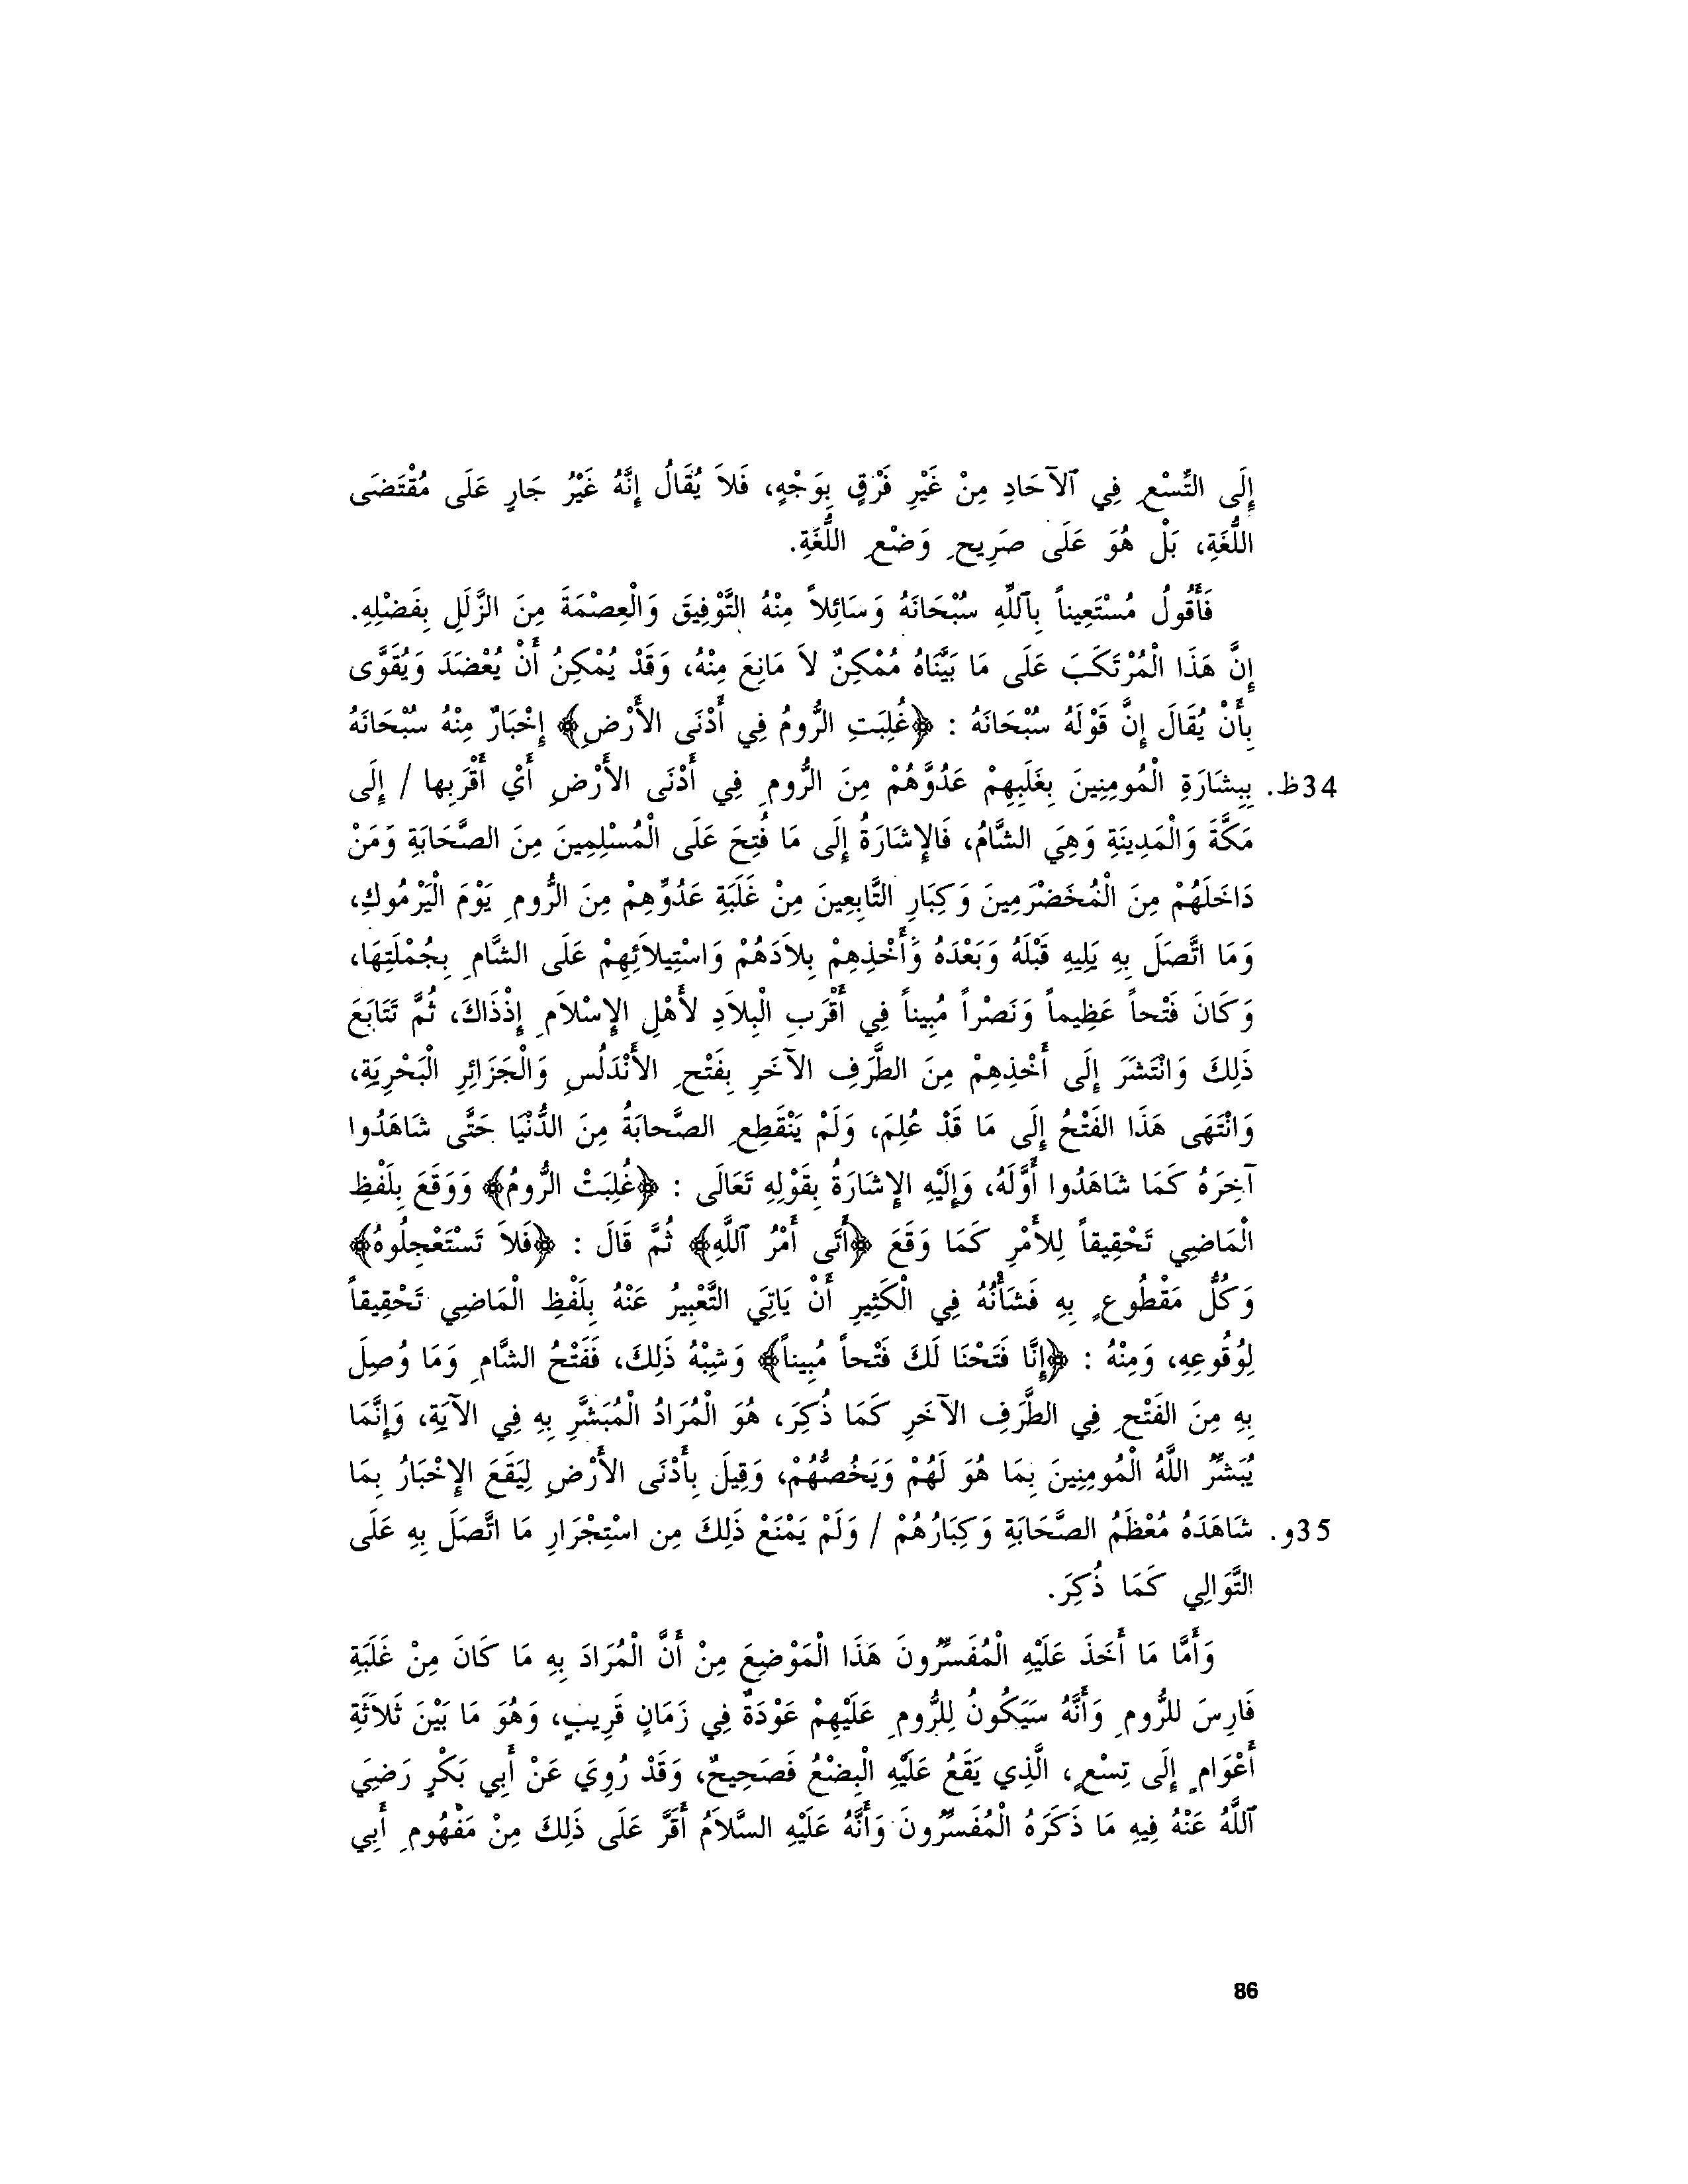 إِلَى التِّسْعِ فِي ٱلآحَادِ مِنْ غَيْرِ فَرْقٍ بِوَجْهٍ، فَلاَ يُقَالُ إِنَّهُ غَيْرُ جَارٍ عَلَى مُقْتَضَى
اللُّغَةِ، بَلْ هُوَ عَلَى صَرِيحِ وَضْعِ اللُّغَةِ.
فَأَقُولُ مُسْتَعِيناً بِٱللَّهِ سُبْحَانَهُ وَسَائِلاً مِنْهُ التَّوْفِيقَ وَالْعِصْمَةَ مِنَ الزَّلَلِ بِفَضْلِهِ.
إِنَّ هَذَا الْمُرْتَكَبَ عَلَى مَا بَيَّنَاهُ مُمْكِنٌ لاَ مَانِعَ مِنْهُ، وَقَدْ يُمْكِنُ أَنْ يُعْضَدَ وَيُقَوَّى
بِأَنْ يُقَالَ إِنَّ قَوْلَهُ سُبْحَانَهُ : ﴿غُلِبَتِ الرُّومُ فِي أَدْنَى الأَرْضِ﴾ إِخْبَارٌ مِنْهُ سُبْحَانَهُ
34ظ. بِبِشَارَةِ الْمُومِنِينَ بِغَلَبِهِمْ عَدُوَّهُمْ مِنَ الرُّومِ فِي أَدْنَى الأَرْضِ أَيْ أَقْرَبِها / إِلَى
مَكَّةَ وَالْمَدِينَةِ وَهِيَ الشَّامُ، فَالإِشَارَةُ إِلَى مَا فُتِحَ عَلَى الْمُسْلِمِينَ مِنَ الصَّحَابَةِ وَمَنْ
دَاخَلَهُمْ مِنَ الْمُخَضْرَمِينَ وَكِبَارِ التَّابِعِينَ مِنْ غَلَبَةِ عَدُوِّهِمْ مِنَ الرُّومِ يَوْمَ الْيَرْمُوكِ،
وَمَا اتَّصَلَ بِهِ يَلِيهِ قَبْلَهُ وَبَعْدَهُ وَأَخْذِهِمْ بِلاَدَهُمْ وَاسْتِيلاَئِهِمْ عَلَى الشَّامِ بِجُمْلَتِهَا،
وَكَانَ فَتْحاً عَظِيماً وَنَصْراً مُبِيناً فِي أَقْرَبِ الْبِلاَدِ لأَهْلِ الإِسْلاَمِ إِذْذَاكَ، ثُمَّ تَتَابَعَ
ذَلِكَ وَانْتَشَرَ إِلَى أَخْذِهِمْ مِنَ الطَّرَفِ الآخَرِ بِفَتْحِ الأَنْدَلُسِ وَالْجَزَائِرِ الْبَحْرِيَةِ،
وَانْتَهَى هَذَا الفَتْحُ إِلَى مَا قَدْ عُلِمَ، وَلَمْ يَنْقَطِعِ الصَّحابَةُ مِنَ الدُّنْيَا حَتَّى شَاهَدُوا
آخِرَهُ كَمَا شَاهَدُوا أَوَّلَهُ، وَإِلَيْهِ الإِشَارَةُ بِقَوْلِهِ تَعَالَى : ﴿غُلِبَتْ الرُّومُ﴾ وَوَقَعَ بِلَفْظِ
الْمَاضِي تَحْقِيقاً لِلأَمْرِ كَمَا وَقَعَ ﴿أَتَى أَمْرُ ٱللَّهِ﴾ ثُمَّ قَالَ : ﴿فَلاَ تَسْتَعْجِلُوهُ﴾
وَكُلُّ مَقْطُوعٍ بِهِ فَشَأْنُهُ فِي الْكَثِيرِ أَنْ يَاتِيَ التَّعْبِيرُ عَنْهُ بِلَفْظِ الْمَاضِي تَحْقِيقاً
لِوُقُوعِهِ، وَمِنْهُ : ﴿إِنَّا فَتَحْنَا لَكَ فَتْحاً مُبِيناً﴾ وَشِبْهُ ذَلِكَ، فَفَتْحُ الشَّامِ وَمَا وُصِلَ
بِهِ مِنَ الفَتْحِ فِي الطَّرَفِ الآخَرِ كَمَا ذُكِرَ، هُوَ الْمُرَادُ الْمُبَشَّرِ بِهِ فِي الآيَةِ، وَإِنَّمَا
يُبَشِّرُ اللَّهُ الْمُومِنِينَ بِمَا هُوَ لَهُمْ وَيَخُصُّهُمْ، وَقِيلَ بِأَدْنَى الأَرْضِ لِيَقَعَ الإِخْبَارُ بِمَا
35و. شَاهَدَهُ مُعْظَمُ الصَّحَابَةِ وَكِبَارُهُمْ / وَلَمْ يَمْنَعْ ذَلِكَ مِن اسْتِجْرَارِ مَا اتَّصَلَ بِهِ عَلَى
التَّوَالِي كَمَا ذُكِرَ.
وَأَمَّا مَا أَخَذَ عَلَيْهِ الْمُفَسِّرُونَ هَذَا الْمَوْضِعَ مِنْ أَنَّ الْمُرَادَ بِهِ مَا كَانَ مِنْ غَلَبَةِ
فَارِسَ للرُّومِ وَأَنَّهُ سَيَكُونُ لِلرُّومِ عَلَيْهِمْ عَوْدَةٌ فِي زَمَانٍ قَرِيبٍ، وَهُوَ مَا بَيْنَ ثَلاَثَةِ
أَعْوَامٍ إِلَى تِسْعٍ، الَّذِي يَقَعُ عَلَيْهِ الْبِضْعُ فَصَحِيحٌ، وَقَدْ رُوِيَ عَنْ أَبِي بَكْرٍ رَضِيَ
ٱللَّهُ عَنْهُ فِيهِ مَا ذَكَرَهُ الْمُفَسِّرُونَ وَأَنَّهُ عَلَيْهِ السَّلاَمُ أَقَرَّ عَلَى ذَلِكَ مِنْ مَفْهُومِ أَبِي
86